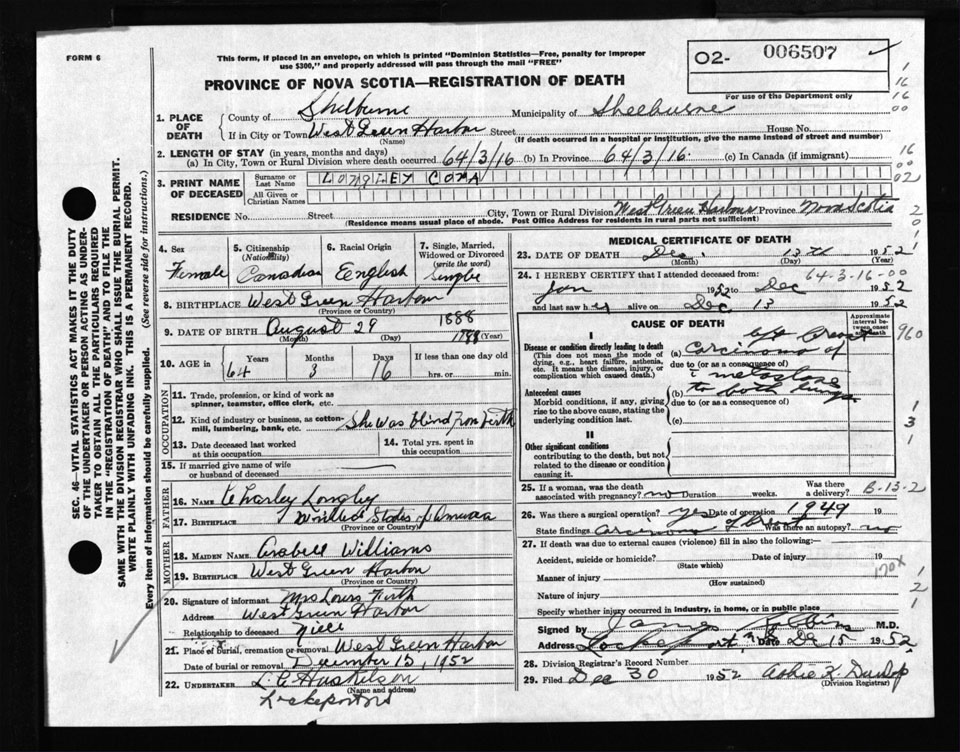 FORM 6
This form, if placed in an envelope, on which is printed "Dominion Statistics—Free, penalty for improper
use $300," and properly addressed will pass through the mail "FREE"
O2- 006507
For use of the Department only
PROVINCE OF NOVA SCOTIA—REGISTRATION OF DEATH
1. PLACE OF DEATH County of Shelburne Municipality of Shelburne
If in City or Town West Green Harbor Street House No.
(Name) (If death occurred in a hospital or institution, give the name instead of street and number)
2. LENGTH OF STAY (in years, months and days)
(a) In City, Town or Rural Division where death occurred 64/3/16 (b) In Province 64/3/16. (c) In Canada (if immigrant)
3. PRINT NAME OF DECEASED Surname or Last Name LONGLEY CORA
All Given or Christian Names
RESIDENCE No. Street City, Town or Rural Division West Green Harbour Province Nova Scotia
(Residence means usual place of abode. Post Office Address for residents in rural parts not sufficient)
4. Sex Female
5. Citizenship (Nationality) Canadian
6. Racial Origin English
7. Single, Married, Widowed or Divorced (write the word) Single
8. BIRTHPLACE West Green Harbour
(Province or Country)
9. DATE OF BIRTH August 29 1888
(Month) (Day) (Year)
10. AGE in Years Months Days If less than one day old
64 3 16 hrs. or min.
OCCUPATION
11. Trade, profession, or kind of work as spinner, teamster, office clerk, etc.
12. Kind of industry or business, as cotton-mill, lumbering, bank, etc. She was blind from birth
13. Date deceased last worked at this occupation
14. Total yrs. spent in this occupation
15. If married give name of wife or husband of deceased
FATHER
16. NAME Charley Longley
17. BIRTHPLACE United States of America
(Province or Country)
MOTHER
18. MAIDEN NAME Arabell Williams
19. BIRTHPLACE West Green Harbor
(Province or Country)
20. Signature of informant Mrs Louis Firth
Address West Green Harbor
Relationship to deceased niece
21. Place of burial, cremation or removal West Green Harbor
Date of burial or removal December 15, 1952
22. UNDERTAKER L. C. Huskilson
(Name and address)
MEDICAL CERTIFICATE OF DEATH
23. DATE OF DEATH Dec. 13th 1952
(Month) (Day) (Year)
64-3-16-00
24. I HEREBY CERTIFY that I attended deceased from:
Jan 1952 to Dec 1952
and last saw her alive on Dec 13 1952
CAUSE OF DEATH
Approximate interval between onset and death
I
Disease or condition directly leading to death
(This does not mean the mode of dying, e.g., heart failure, asthenia, etc. It means the disease, injury, or complication which caused death.)
left breast
(a) Carcinoma of
due to (or as a consequence of)
Antecedent causes
Morbid conditions, if any, giving rise to the above cause, stating the underlying condition last.
(b) to both lungs
due to (or as a consequence of)
(c)
II
Other significant conditions
contributing to the death, but not related to the disease or condition causing it.
960
25. If a woman, was the death associated with pregnancy? no Duration weeks. Was there a delivery? B-13-2
26. Was there a surgical operation? yes Date of operation 1949 19
State findings Carcinoma of breast Was there an autopsy? no
27. If death was due to external causes (violence) fill in also the following:—
Accident, suicide or homicide? Date of injury 19
(State which)
170X
Manner of injury
(How sustained)
Nature of injury
Specify whether injury occurred in industry, in home, or in public place
Signed by James Robbins M.D.
Address Lockeport, N.S. Dec 15 1952
28. Division Registrar's Record Number
29. Filed Dec 30 1952 K. Dunlop
(Division Registrar)
SEC. 46—VITAL STATISTICS ACT MAKES IT THE DUTY
OF THE UNDERTAKER OR PERSON ACTING AS UNDER-
TAKER TO OBTAIN ALL THE PARTICULARS REQUIRED
IN THE "REGISTRATION OF DEATH" AND TO FILE THE
SAME WITH THE DIVISION REGISTRAR WHO SHALL ISSUE THE BURIAL PERMIT.
WRITE PLAINLY WITH UNFADING INK. THIS IS A PERMANENT RECORD.
Every item of information should be carefully supplied. (See reverse side for instructions.)
1
16
16
00
16
00
02
2
0
1
1
3
1
2
1